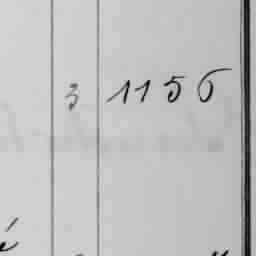 3 1156